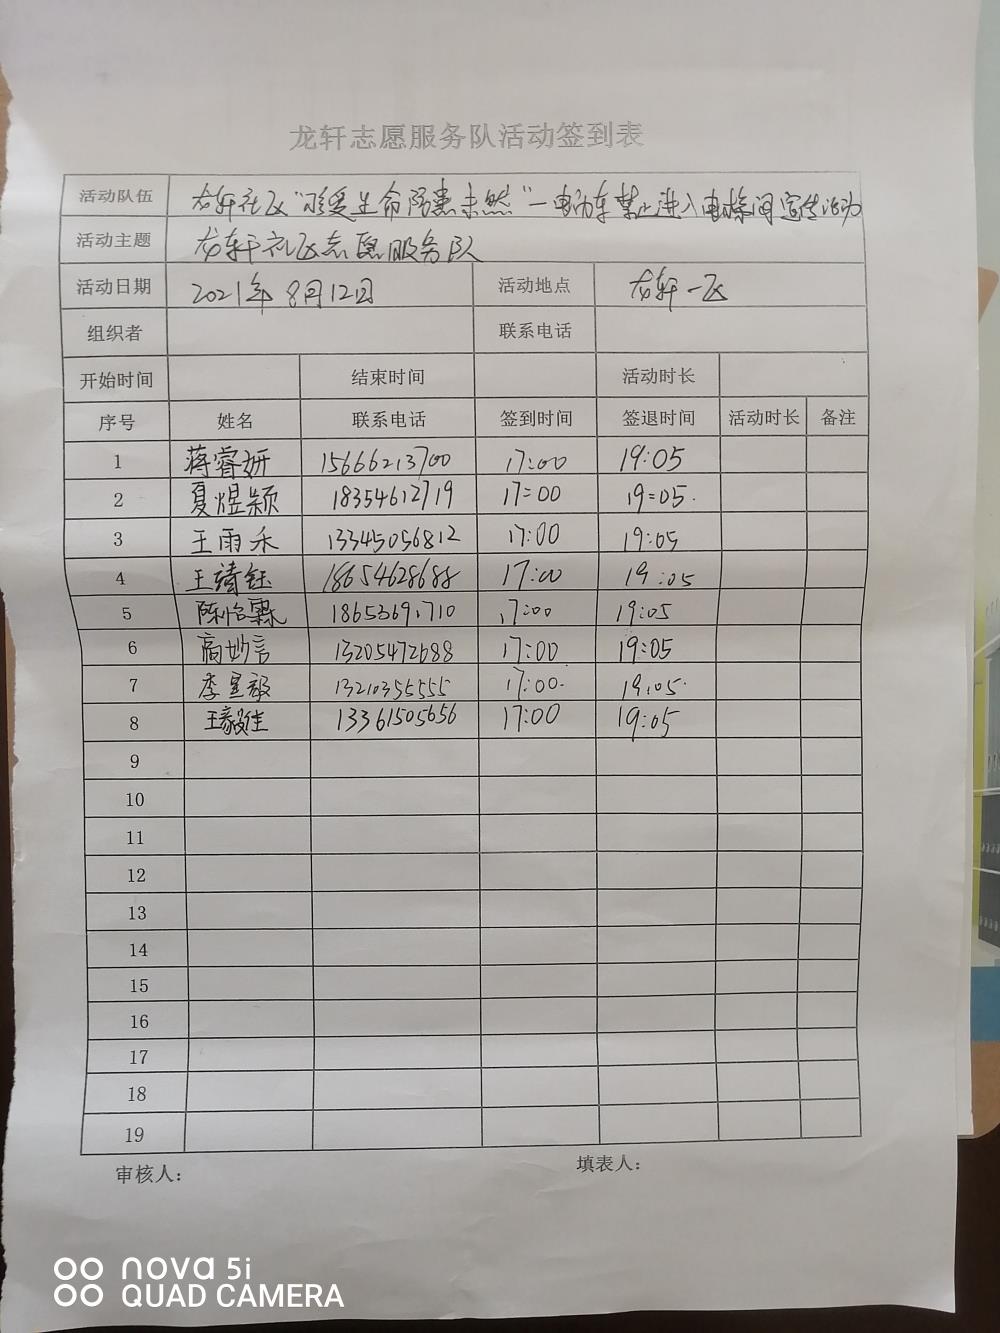 龙轩志愿服务队活动签到表
活动队伍 龙轩社区“珍爱生命 防患未然”一电动车禁止进入电梯间宣传活动
活动主题 龙轩社区志愿服务队
活动日期 2021年8月12日 活动地点 龙轩一区
组织者 联系电话
开始时间 结束时间 活动时长
序号 姓名 联系电话 签到时间 签退时间 活动时长 备注
1 蒋睿妍 15666213700 17:00 19:05
2 夏煜颖 18354612719 17:00 19:05
3 王雨禾 13345056812 17:00 19:05
4 王靖钰 18654628688 17:00 19:05
5 陈怡霖 18653691710 17:00 19:05
6 高妙言 13205472688 17:00 19:05
7 李星毅 13210355555 17:00 19:05
8 王毅维 13361505656 17:00 19:05
9
10
11
12
13
14
15
16
17
18
19
审核人： 填表人：
nova 5i
QUAD CAMERA